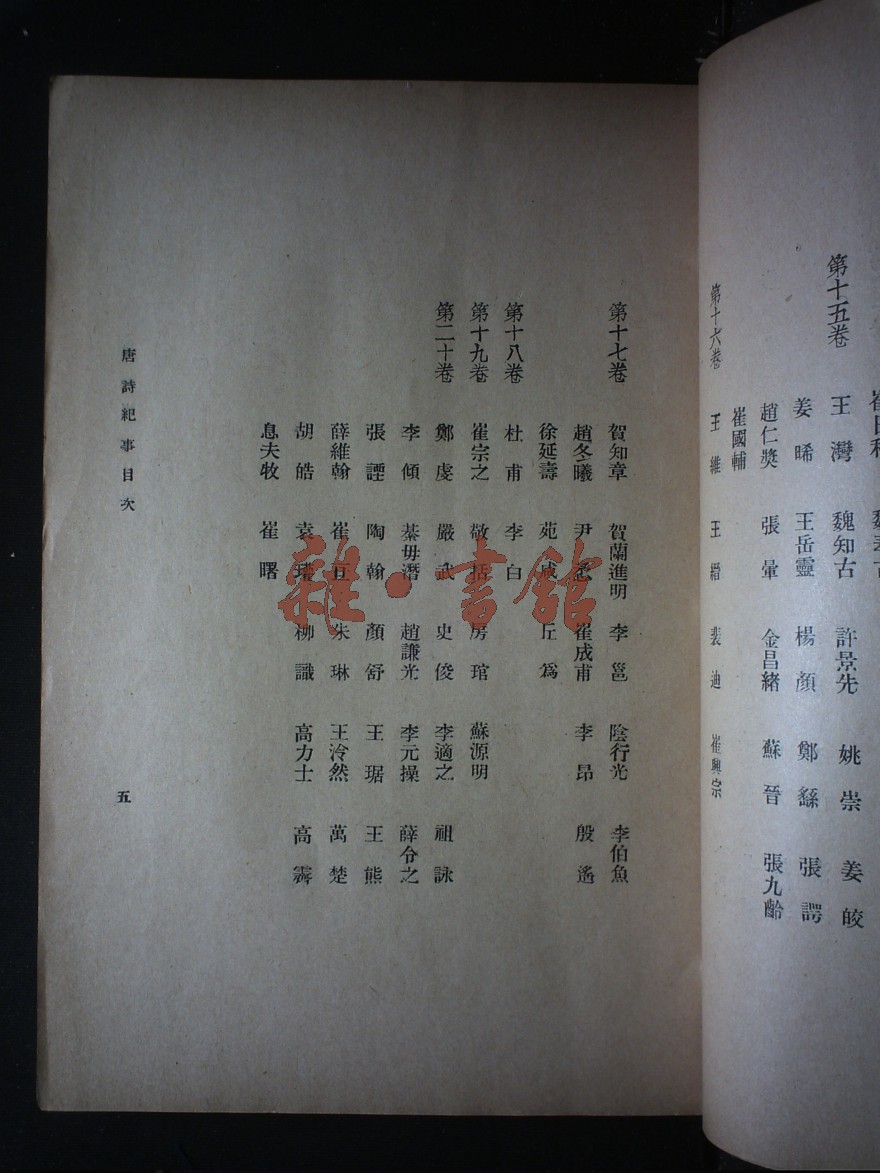 第十五卷 王灣 魏知古 許景先 姚崇 姜皎
姜晞 王岳靈 楊顏 鄭繇 張諤
趙仁獎 張暈 金昌緒 蘇晉 張九齡
崔國輔
第十六卷 王維 王縉 裴迪 崔興宗
第十七卷 賀知章 賀蘭進明 李邕 陰行光 李伯魚
趙冬曦 尹 崔成甫 李昂 殷遙
徐延壽 苑咸 丘為
第十八卷 杜甫 李白
第十九卷 崔宗之 敬括 房琯 蘇源明
第二十卷 鄭虔 嚴武 史俊 李適之 祖詠
李傾 綦毋潛 趙謙光 李元操 薛令之
張諲 陶翰 顏舒 王琚 王熊
薛維翰 崔亘 朱琳 王泠然 萬楚
胡皓 袁瓘 柳識 高力士 高霽
息夫牧 崔曙
唐詩紀事目次
五
雜·書館